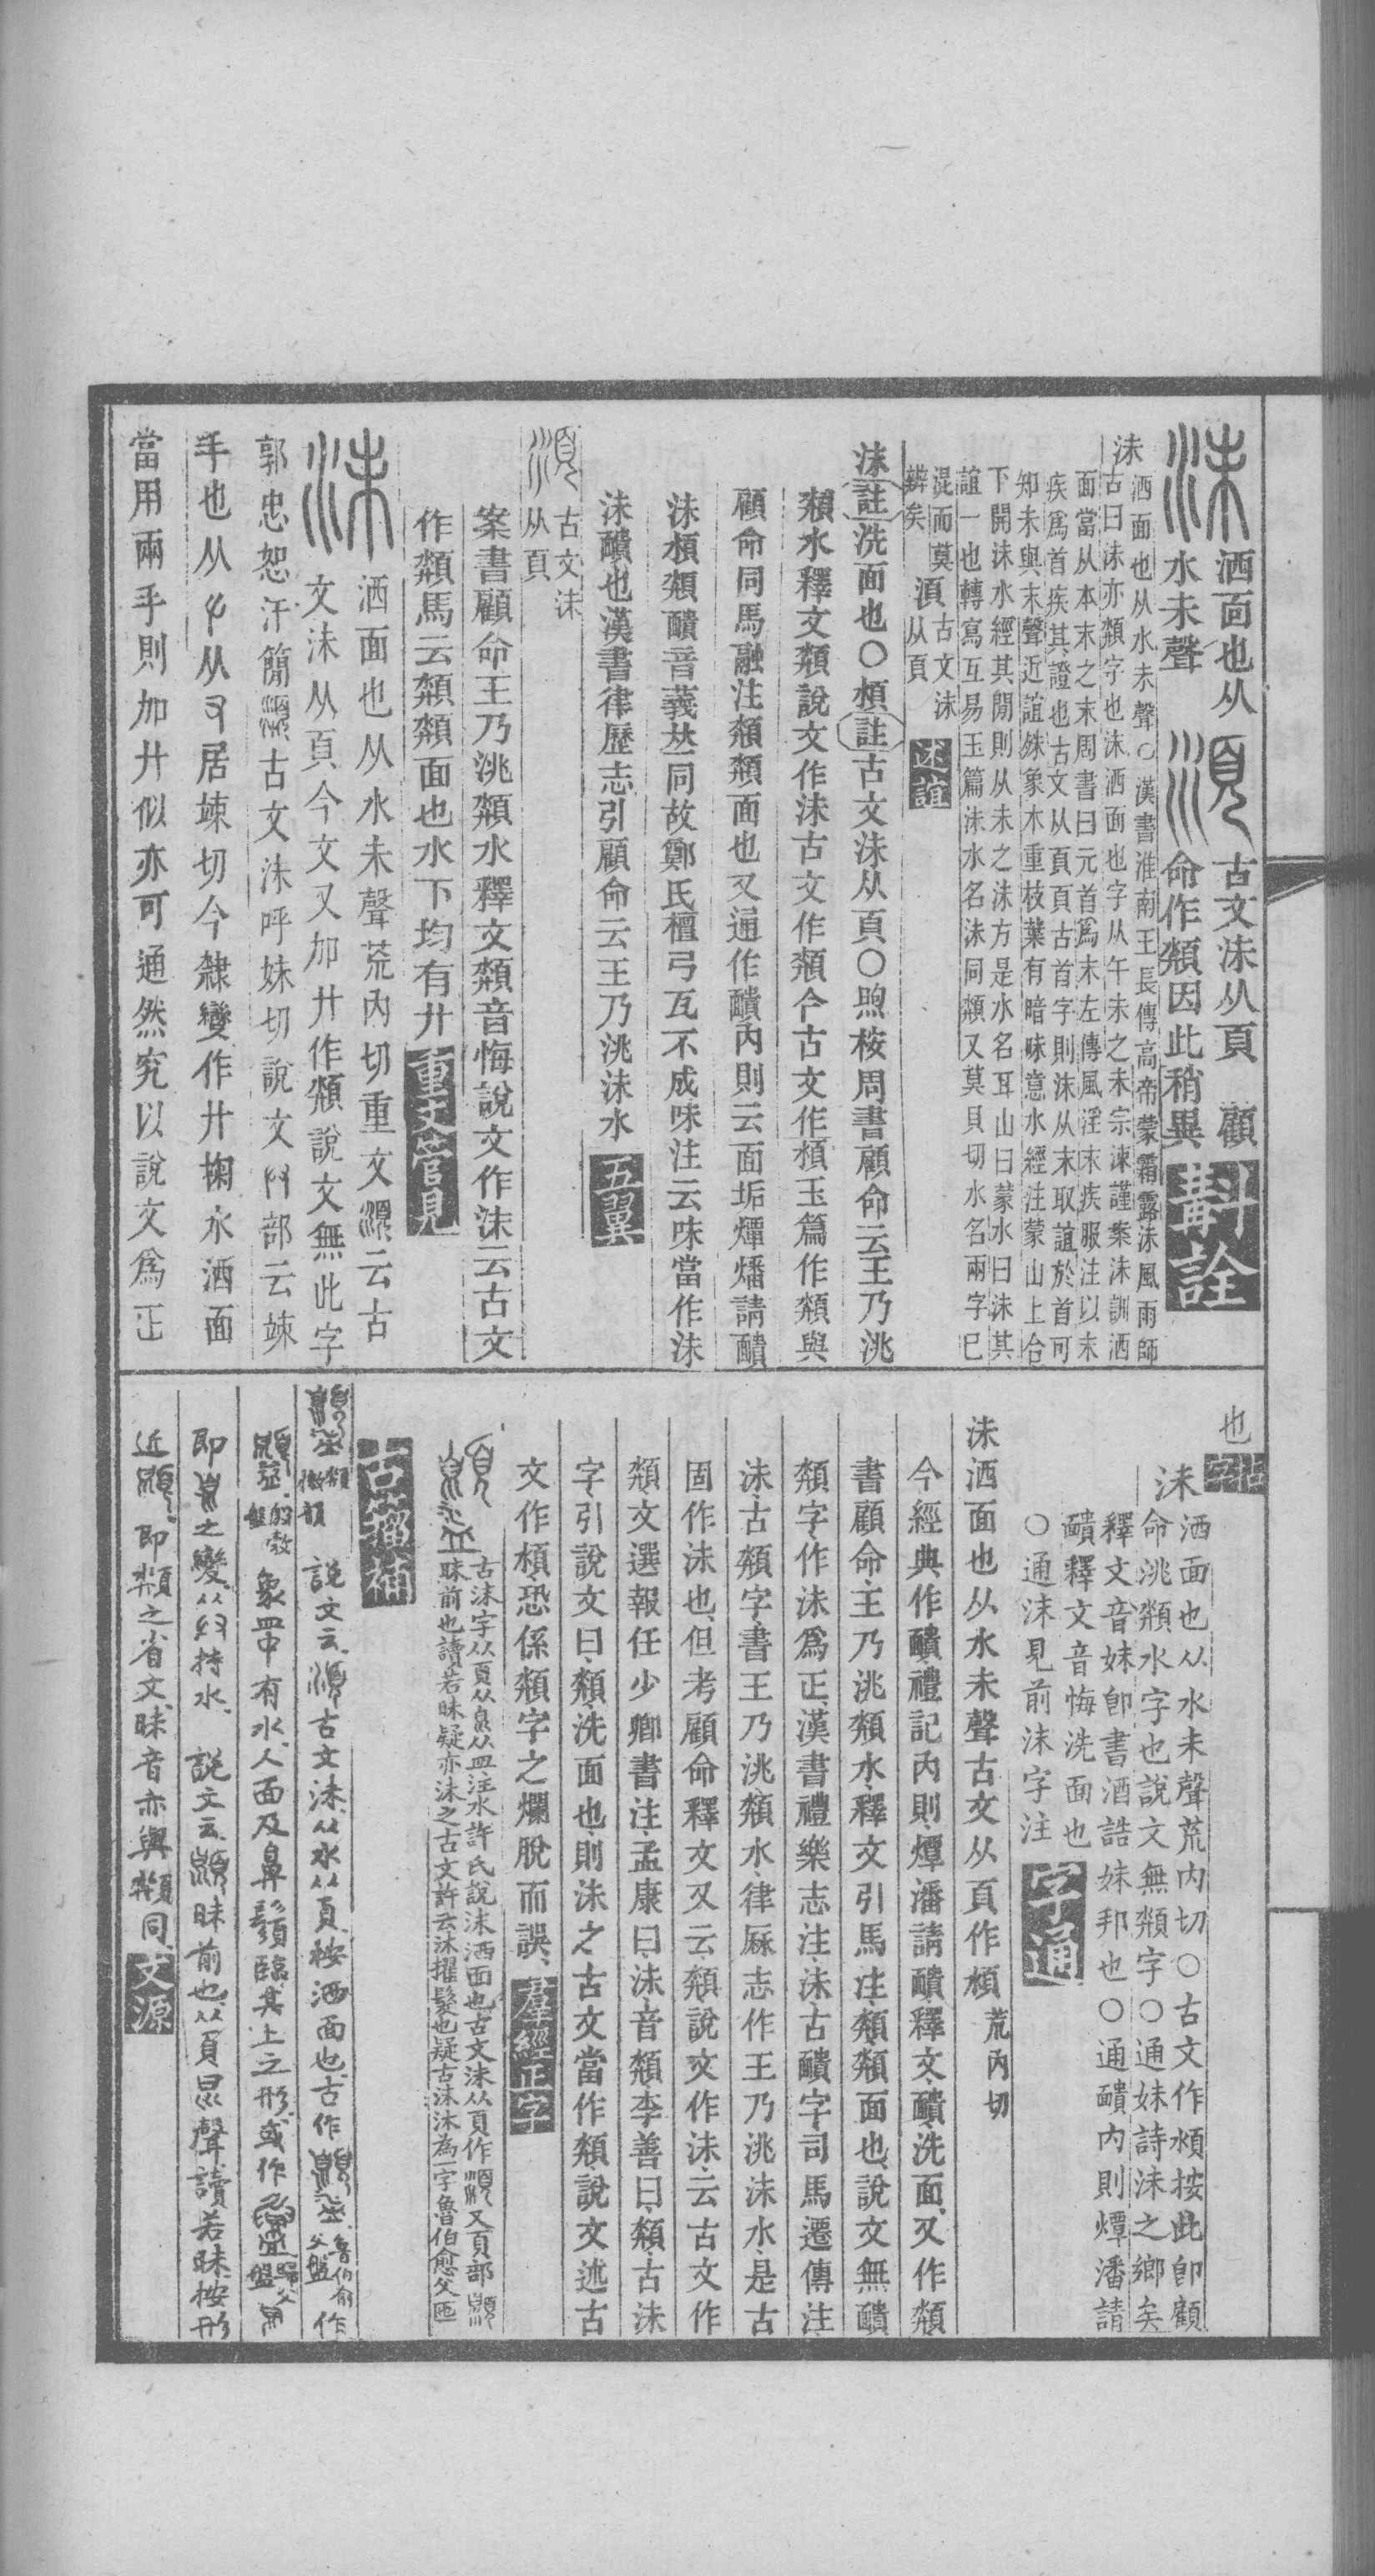 沬
洒面也从
水未聲
湏
古文沬从頁
顧
命作頮因此稍異
斠詮
沬
洒面也从水未聲○漢書淮南王長傳高帝蒙霜露沬風雨師
古曰沬亦頮字也沬洒面也字从午未之未宗諫謹案沬訓洒
面當从本末之末周書曰元首爲末左傳風淫末疾服注以末
疾爲首疾其證也古文从頁頁古首字則沬从末取誼於首可
知未與末聲近誼殊象木重枝葉有暗昧意水經注蒙山上合
下開沬水經其閒則从未之沬方是水名耳山曰蒙水曰沬其
誼一也轉寫互易玉篇沬水名沬同頮又莫貝切水名兩字已
混而莫
辨矣
湏
古文沬
从頁
述誼
沬註洗面也○湏註古文沬从頁○煦桉周書顧命云王乃洮
頮水釋文頮說文作沬古文作頮今古文作湏玉篇作頮與
顧命同馬融注頮頮面也又通作靧內則云面垢燂燔請靧
沬湏頮靧音義㚘同故鄭氏檀弓瓦不成味注云味當作沬
沬靧也漢書律歷志引顧命云王乃洮沬水
五翼
湏
古文沬
从頁
案書顧命王乃洮頮水釋文頮音悔說文作沬云古文
作頮馬云頮頮面也水下均有廾
重文管見
沬
洒面也从水未聲荒內切重文湏云古
文沬从頁今文又加廾作頮說文無此字
郭忠恕汗簡古文沬呼妹切說文部云竦
手也从从居竦切今隸變作廾掬水洒面
當用兩手則加廾似亦可通然究以說文爲正
也
古字
沬
洒面也从水未聲荒內切○古文作湏按此卽顧
命洮頮水字也說文無頮字○通妹詩沬之鄉矣
釋文音妹卽書酒誥妹邦也○通靧內則燂潘請
靧釋文音悔洗面也
○通沫見前沫字注
字通
沬洒面也从水未聲古文从頁作湏荒內切
今經典作靧禮記內則燂潘請靧釋文靧洗面又作頮
書顧命王乃洮頮水釋文引馬注頮頮面也說文無靧
頮字作沬爲正漢書禮樂志注沬古靧字司馬遷傳注
沬古頮字書王乃洮頮水律厤志作王乃洮沬水是古
固作沬也但考顧命釋文又云頮說文作沬云古文作
頮文選報任少卿書注孟康曰沬音頮李善曰頮古沬
字引說文曰頮洗面也則沬之古文當作頮說文述古
文作湏恐係頮字之爛脫而誤
羣經正字
古沬字从頁从从皿注水許氏說沬洒面也古文沬从頁作湏又頁部
昧前也讀若昧疑亦沬之古文許云沐擢髮也疑古沬沐為一字魯伯愈父匜
古籀補
頮
微韻
說文云湏古文沬从水从頁按洒面也古作
魯伯俞
父盤
作
象皿中有水人面及鼻鬚臨其上之形或作
即之變从持水說文云昧前也从頁㬎聲讀若昧按形
近即頮之省文昧音亦與頮同
文源